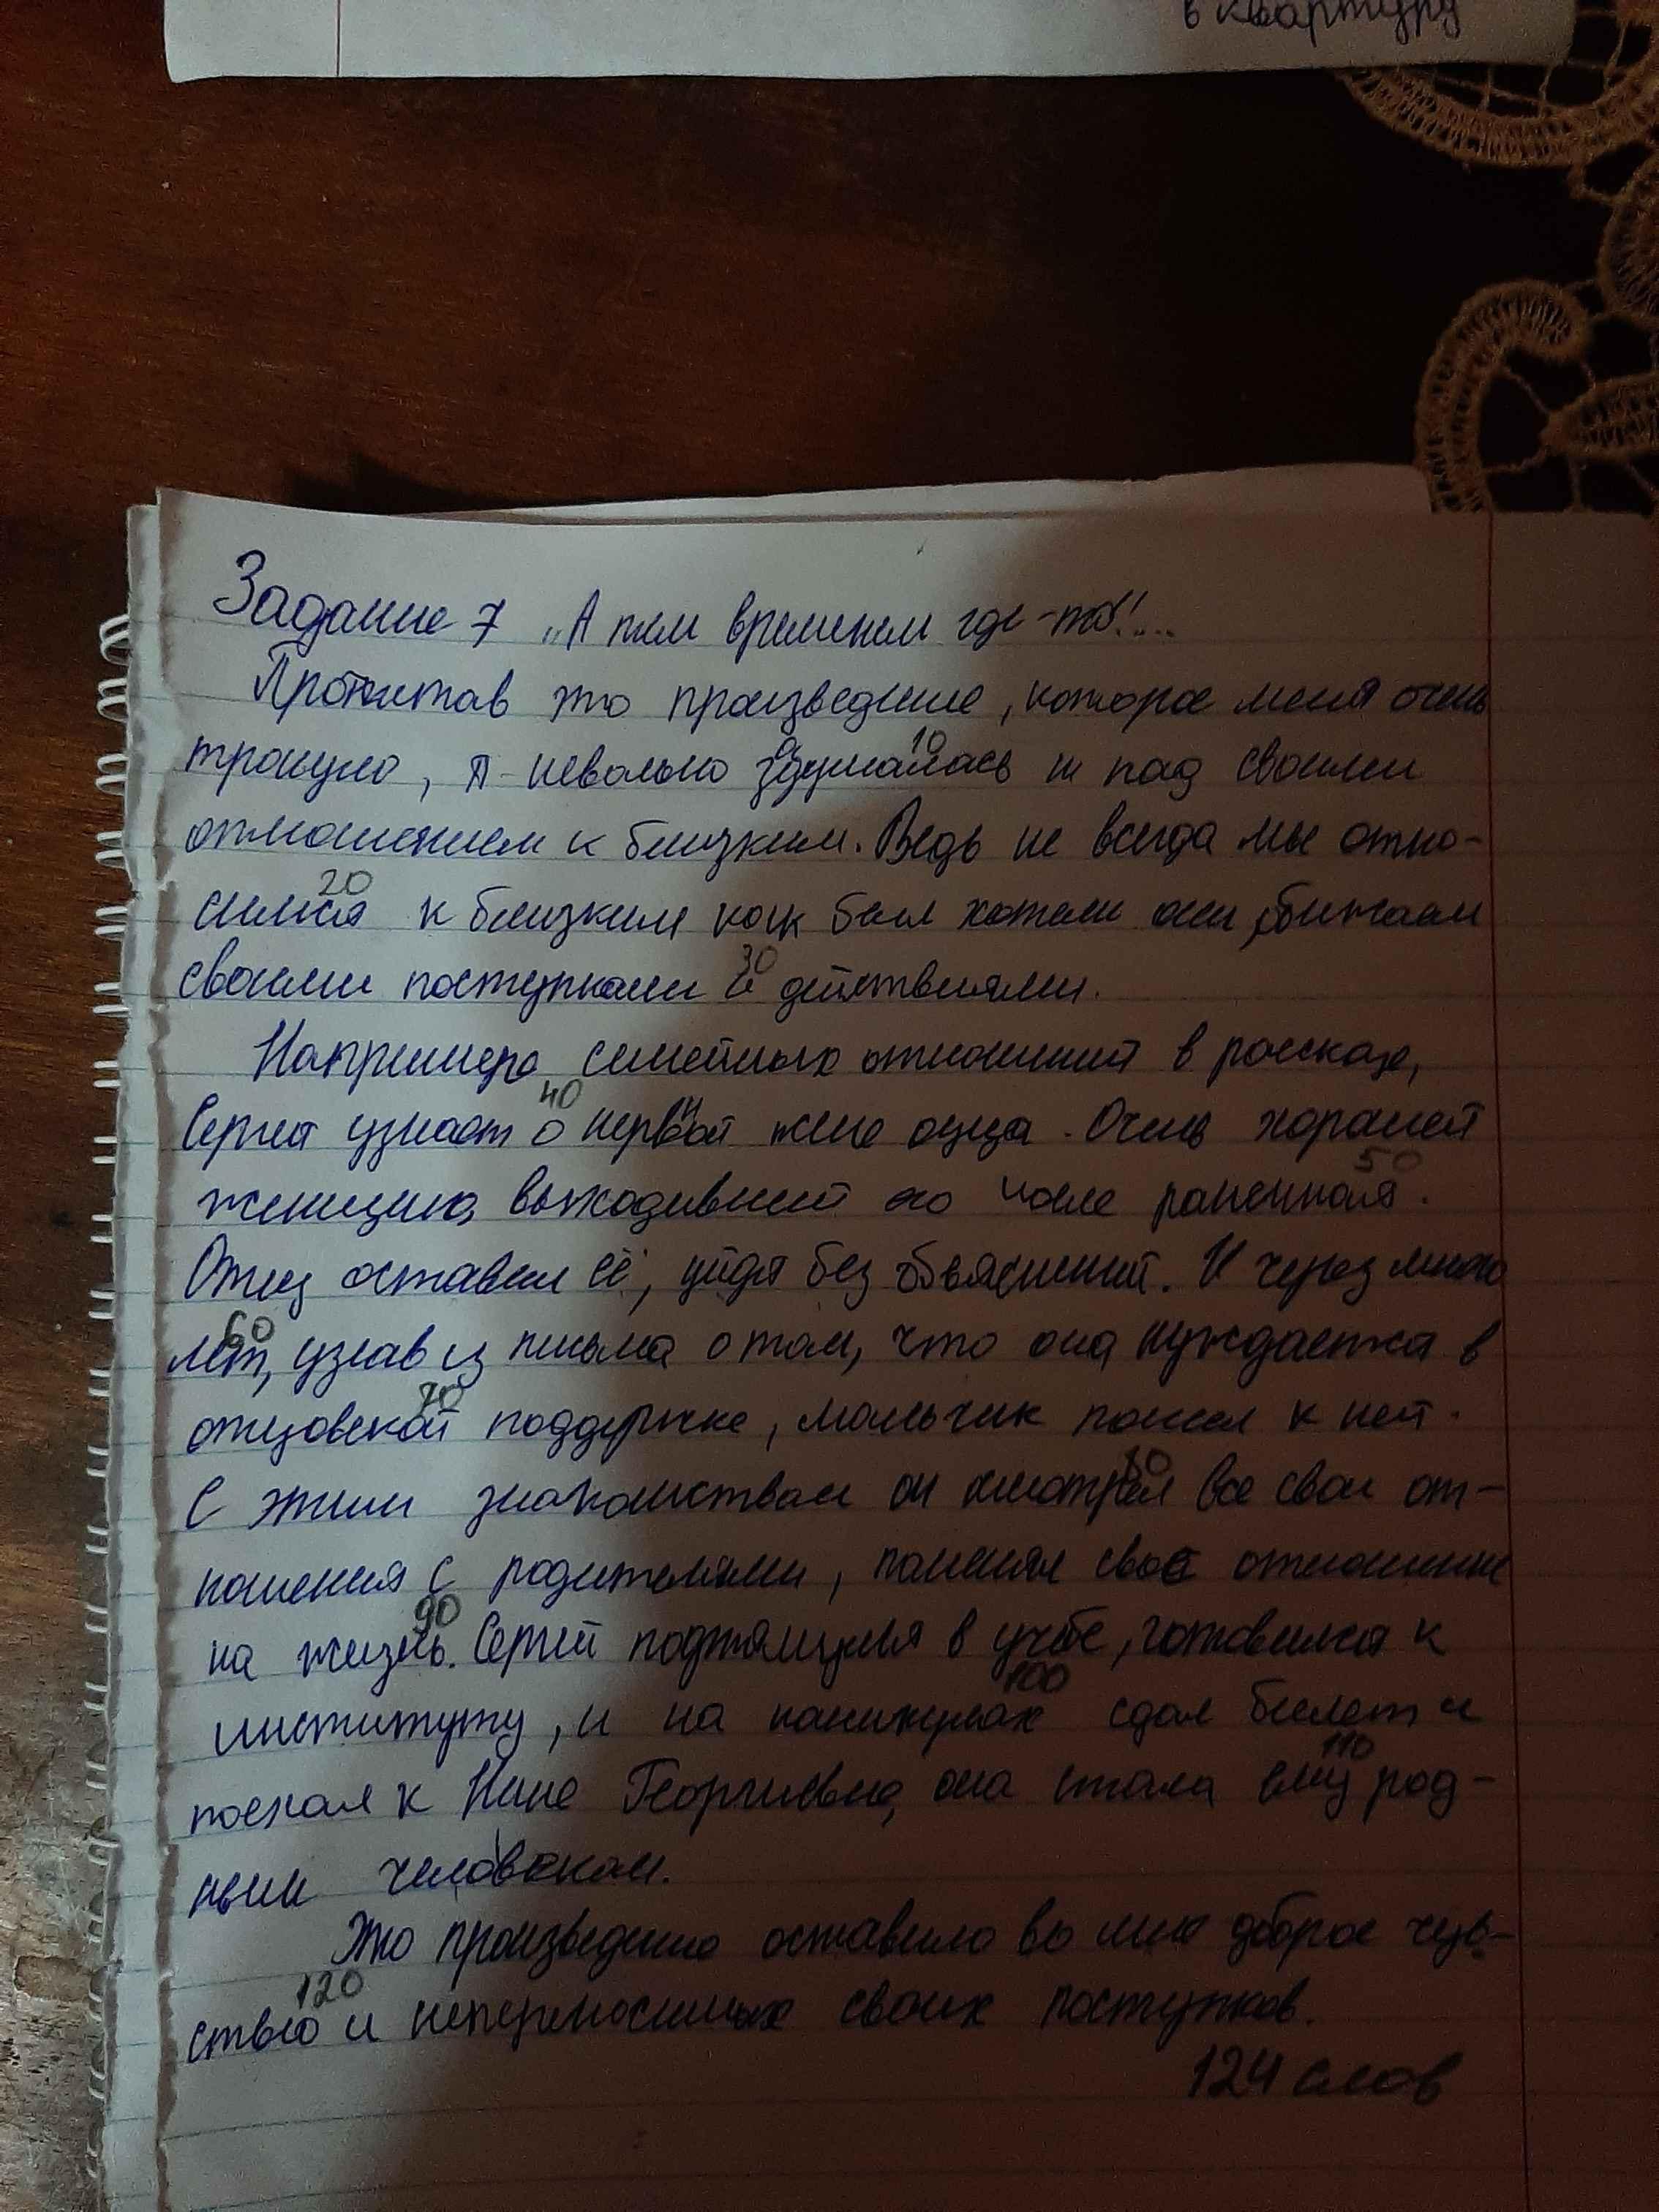 в квартиру
Задание 7 „А тем временем где-то!...
Прочитав это произведение, которое меня очень
10
тронуло, я невольно задумалась и над своими
отношением к близким. Ведь не всегда мы отно-
20
симся к близким как бы хотели они, обижаем
30
своими поступками и действиями.
Например семейных отношений в рассказе,
40
Сергей узнает о первой жене отца. Очень хорошей
50
женщине, выходившей его после ранения.
Отец оставил её, уйдя без объяснений. И через много
60
лет, узнав из письма о том, что она нуждается в
70
отцовской поддержке, мальчик пошел к ней.
80
С этим знакомством он смотрел все свои от-
ношения с родителями, поменял своё отношение
90
на жизнь. Сергей подтянулся в учёбе, готовился к
100
институту, и на каникулах сдал билет и
110
поехал к Нине Георгиевне, она стала ему род-
ным человеком.
Это произведение оставило во мне доброе чув-
120
ство и своих поступков.
124 слов